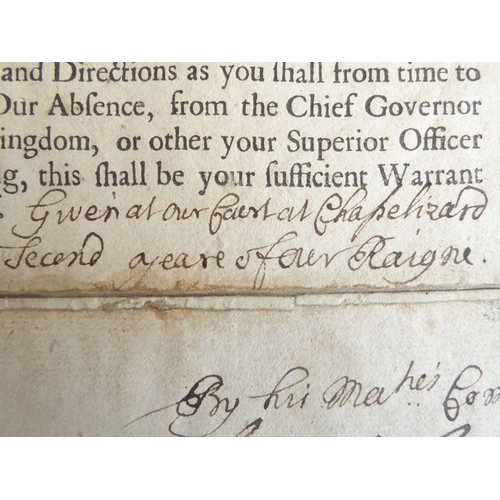 and Directions as you shall from time to
Our Absence, from the Chief Governor
ingdom, or other your Superior Officer
g, this shall be your sufficient Warrant
Given at our Court at Chapelizard
Second yeare of our Raigne.
By his Ma.^(ties) Com